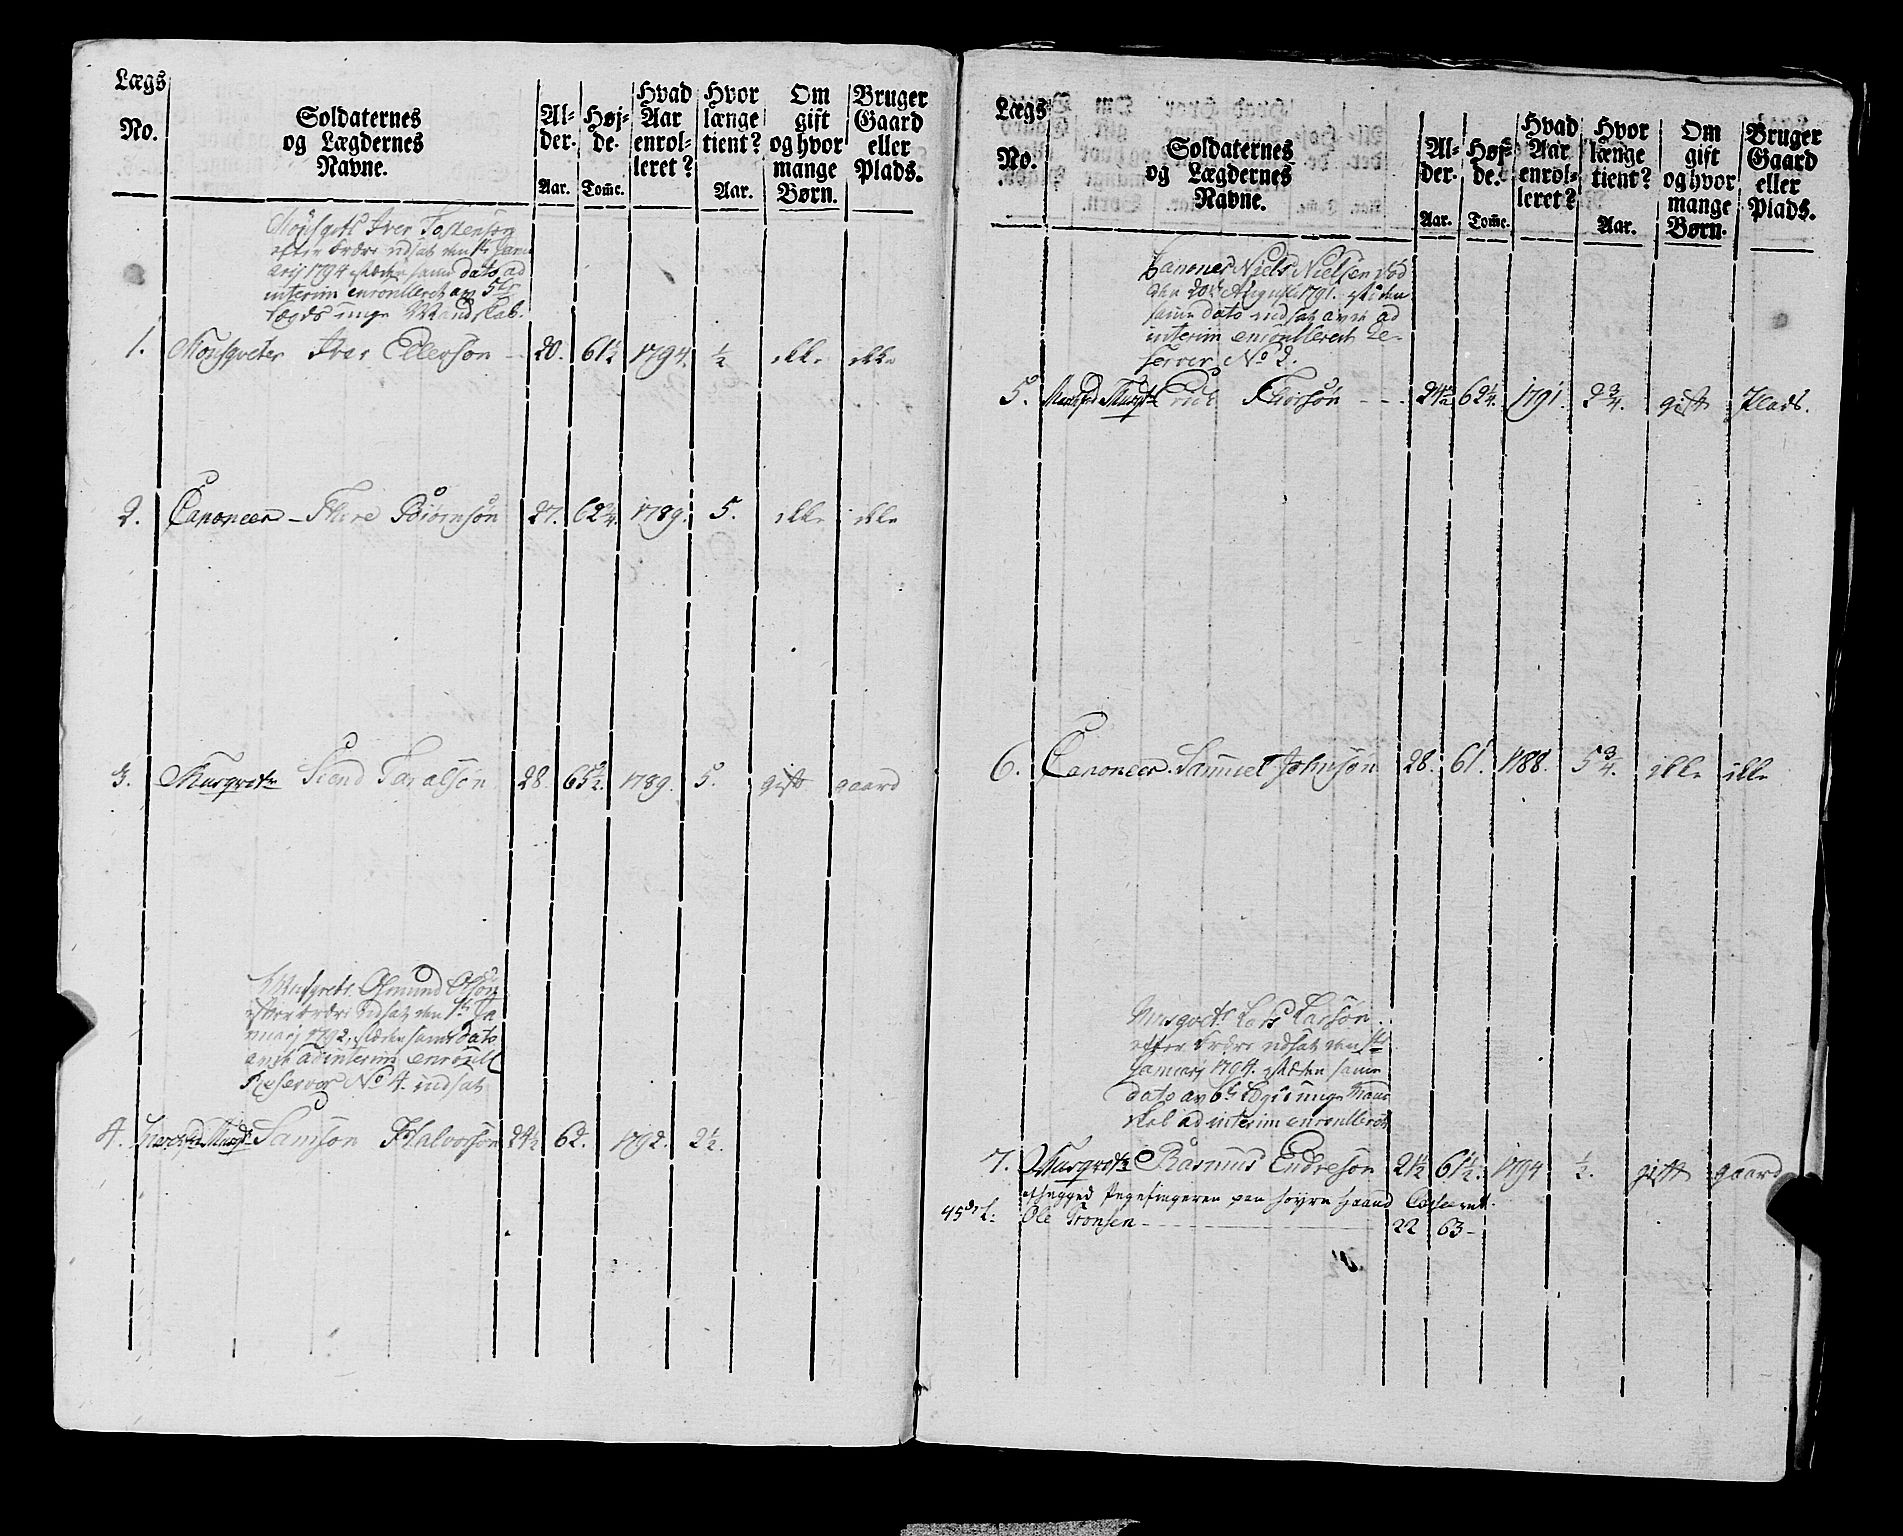 Lægs
No.
Soldaternes
og Lægdernes
Navne.
Al-
der.
Aar.
Høj-
de.
Tom̃e.
Hvad
Aar
enrol-
leret?
Hvor
længe
tient?
Aar.
Om
gift
og hvor
mange
Børn.
Bruger
Gaard
eller
Plads.
Iver Tostensøn
efter Ordre udsat den 1te Janu
arij 1794 istæden samme dato ad
interim enroulleret av 5te
Lægds unge Mandskab.
1. Mousqveter Iver Ellersøn 20. 61½ 1794. ½ ikke ikke
2. Canoneer Thure Biörnsøn 27. 62¾. 1789. 5. ikke ikke
3. Musqvetr Siend Taralsøn 28. 65½. 1789. 5. gift gaard
Musqvetr. Osmund Olsøn
efter Ordre udsat den 1te Ja
nuarij 1792, istæden samme dato
ad interim enroull
Reservor No 4. indsat
4. Samson Halvorsøn 24½ 62. 1792. 2½.
Lægs
No.
Soldaternes
og Lægdernes
Navne.
Al-
der.
Aar.
Høj-
de.
Tom̃e.
Hvad
Aar
enrol-
leret?
Hvor
længe
tient?
Aar.
Om
gift
og hvor
mange
Børn.
Bruger
Gaard
eller
Plads.
Canoneer Niels Nielsen død
den 20de Augusti 1791. istæden
samme dato indsat ad
interim enroulleret Re-
server No 2.
5. Musqvtr Thorsøn 24½ 62¼. 1791. 2¾. gift Plads.
6. Canoneer. Samuel Johnsøn 28. 61. 1788. 5¾. ikke ikke
Musqvetr Lars Larsøn
efter Ordre udsat den 1te
Januarij 1794. istæden samme
dato av 6te Lægds unge Mand
skab ad interim enroulleret
7. Musqvetr Rasmus Endresøn 21½ 61½. 1794 ½. gift gaard
afhugged Pegefingeren paa høyre Haand Casseret.
Ole Tronsen 22 63